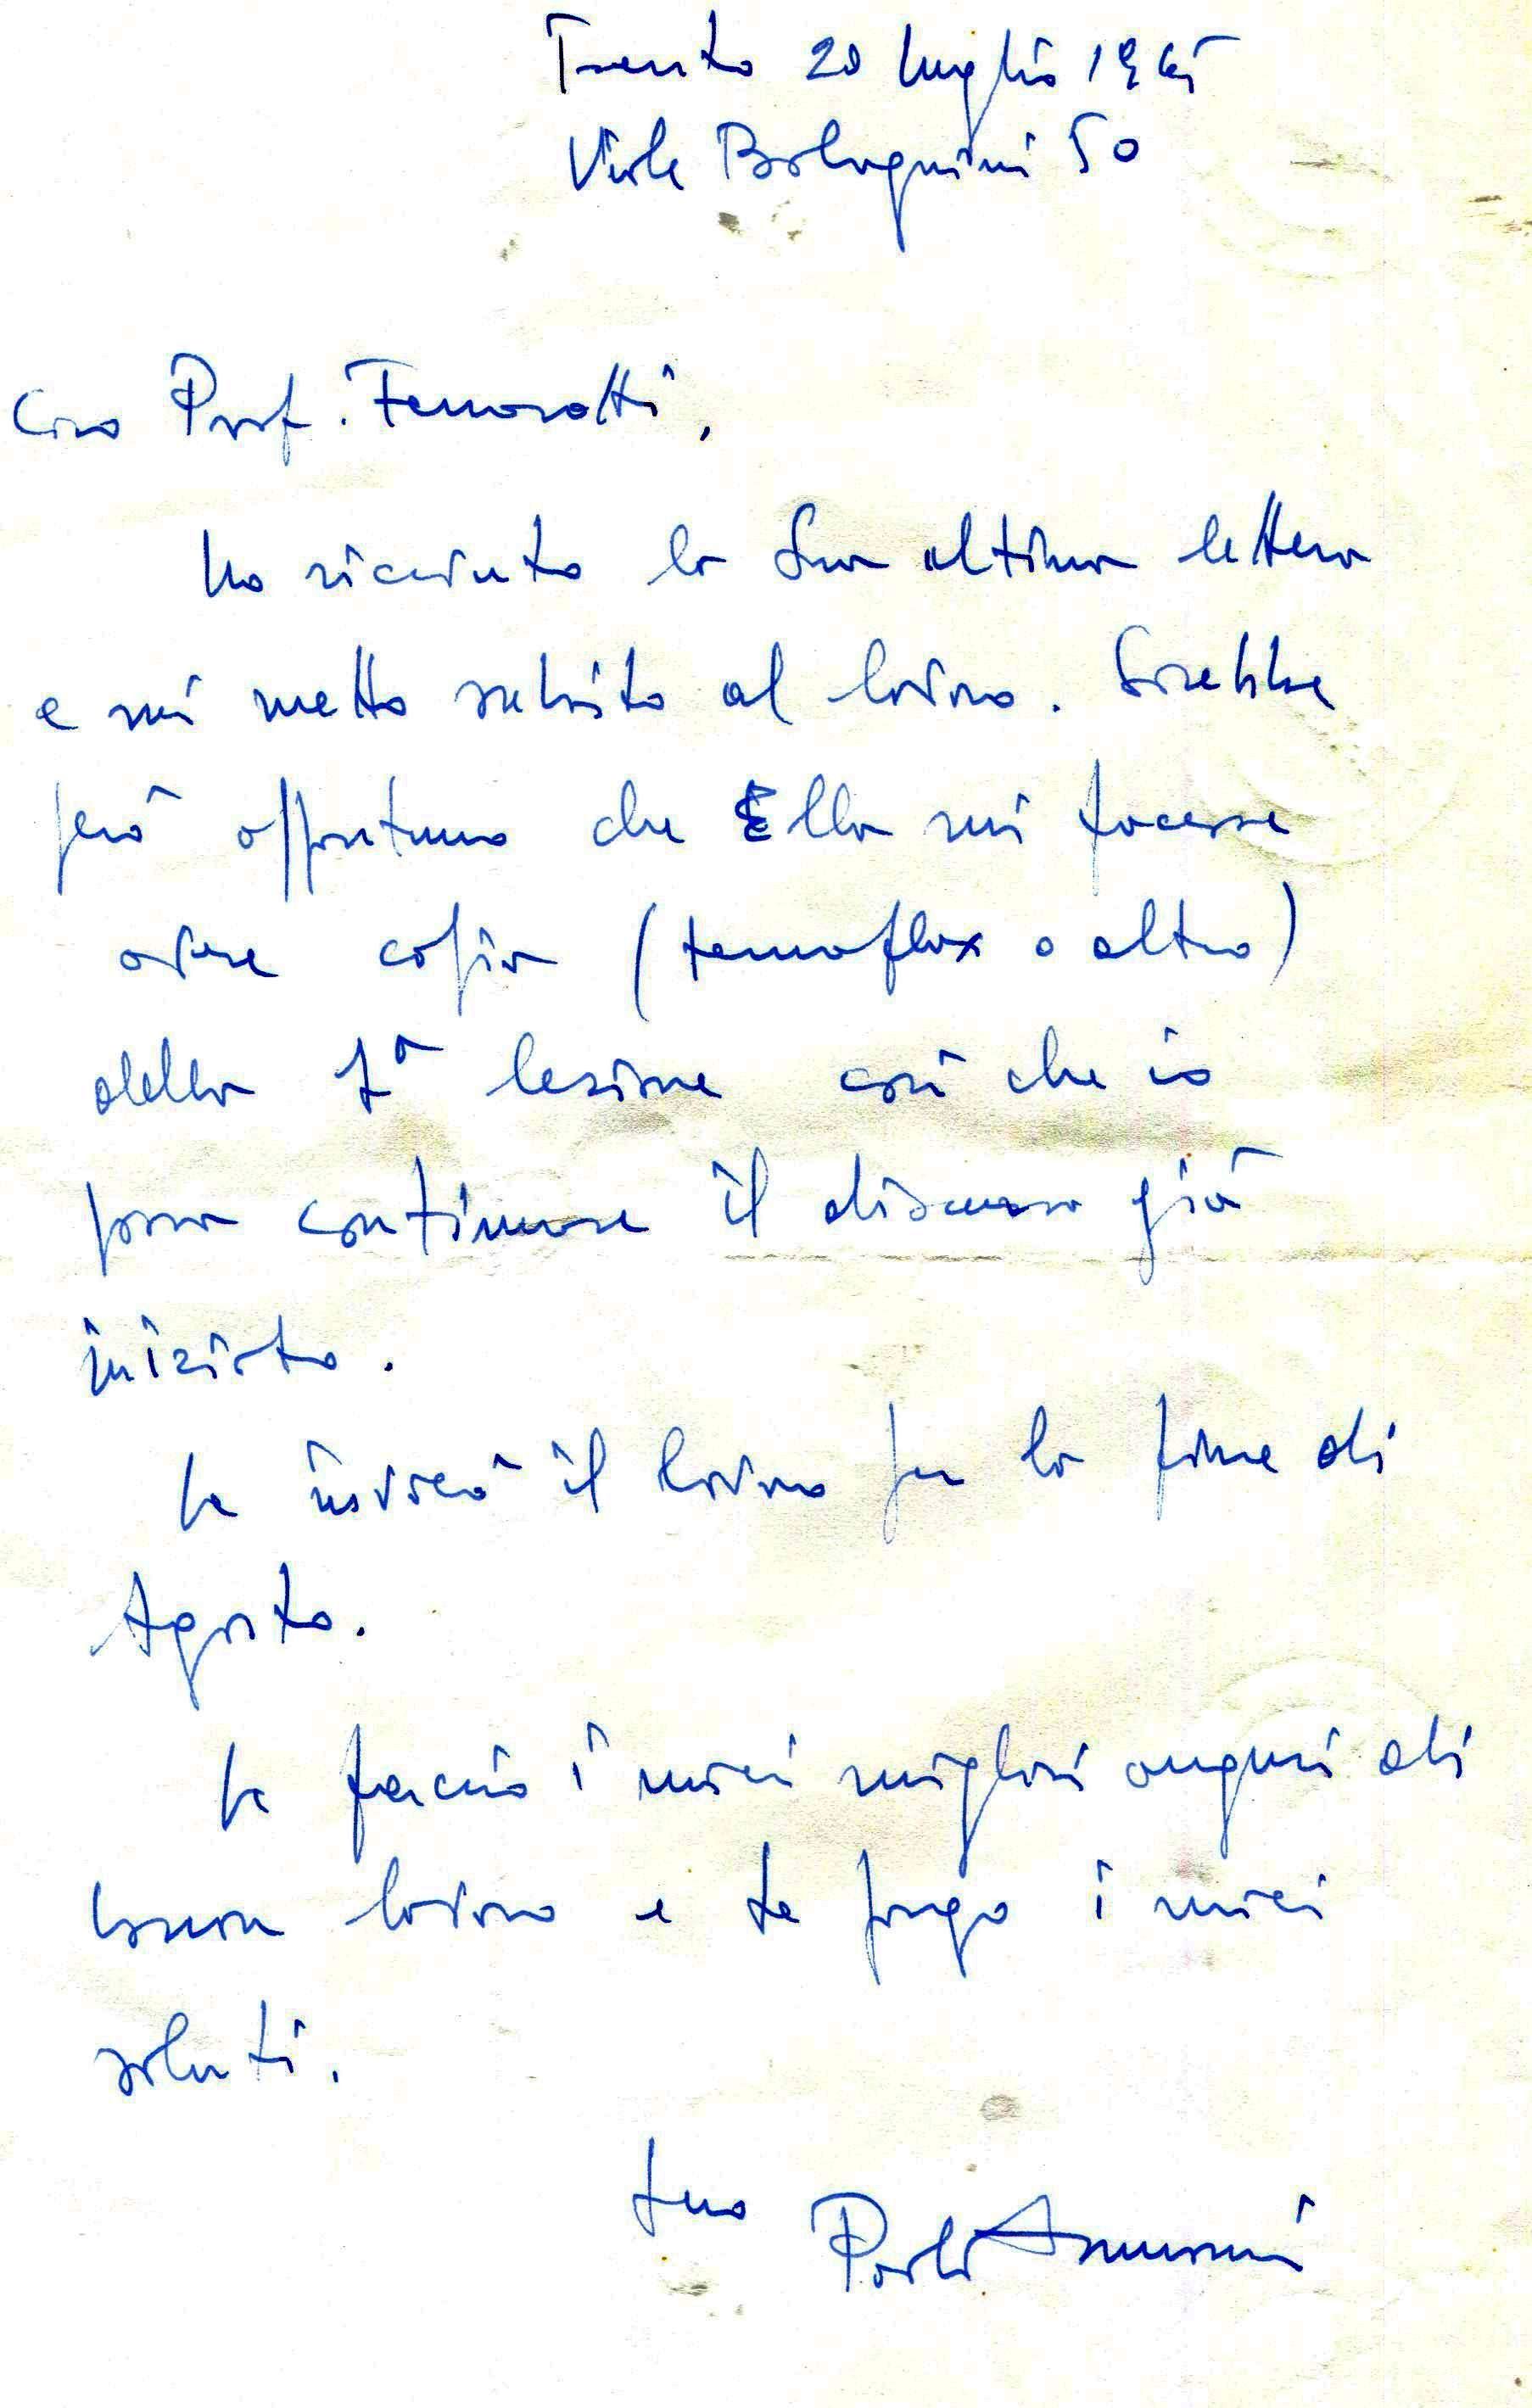 Trento 20 luglio 1965
Viale Bolognini 50
Caro Prof. Ferrarotti,
ho ricevuto la Sua ultima lettera
e mi metto subito al lavoro. Sarebbe
però opportuno che Ella mi facesse
avere copia (termoflax o altro)
della 1ª lezione così che io
possa continuare il discorso già
iniziato.
Le invierò il lavoro per la fine di
Agosto.
Le faccio i miei migliori auguri di
buon lavoro e Le porgo i miei
saluti.
Suo
Paolo Ammassari